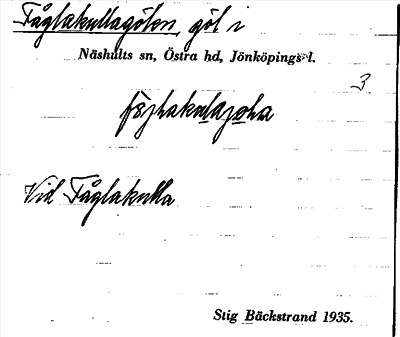 Fåglakullagölen, göl i
Näshults sn, Östra hd, Jönköpings l.
3
Vid Fåglakulla
Stig Bäckstrand 1935.